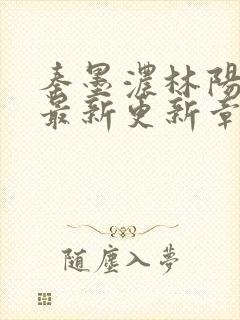 秦墨濃林陽
最新更新章
随塵入夢